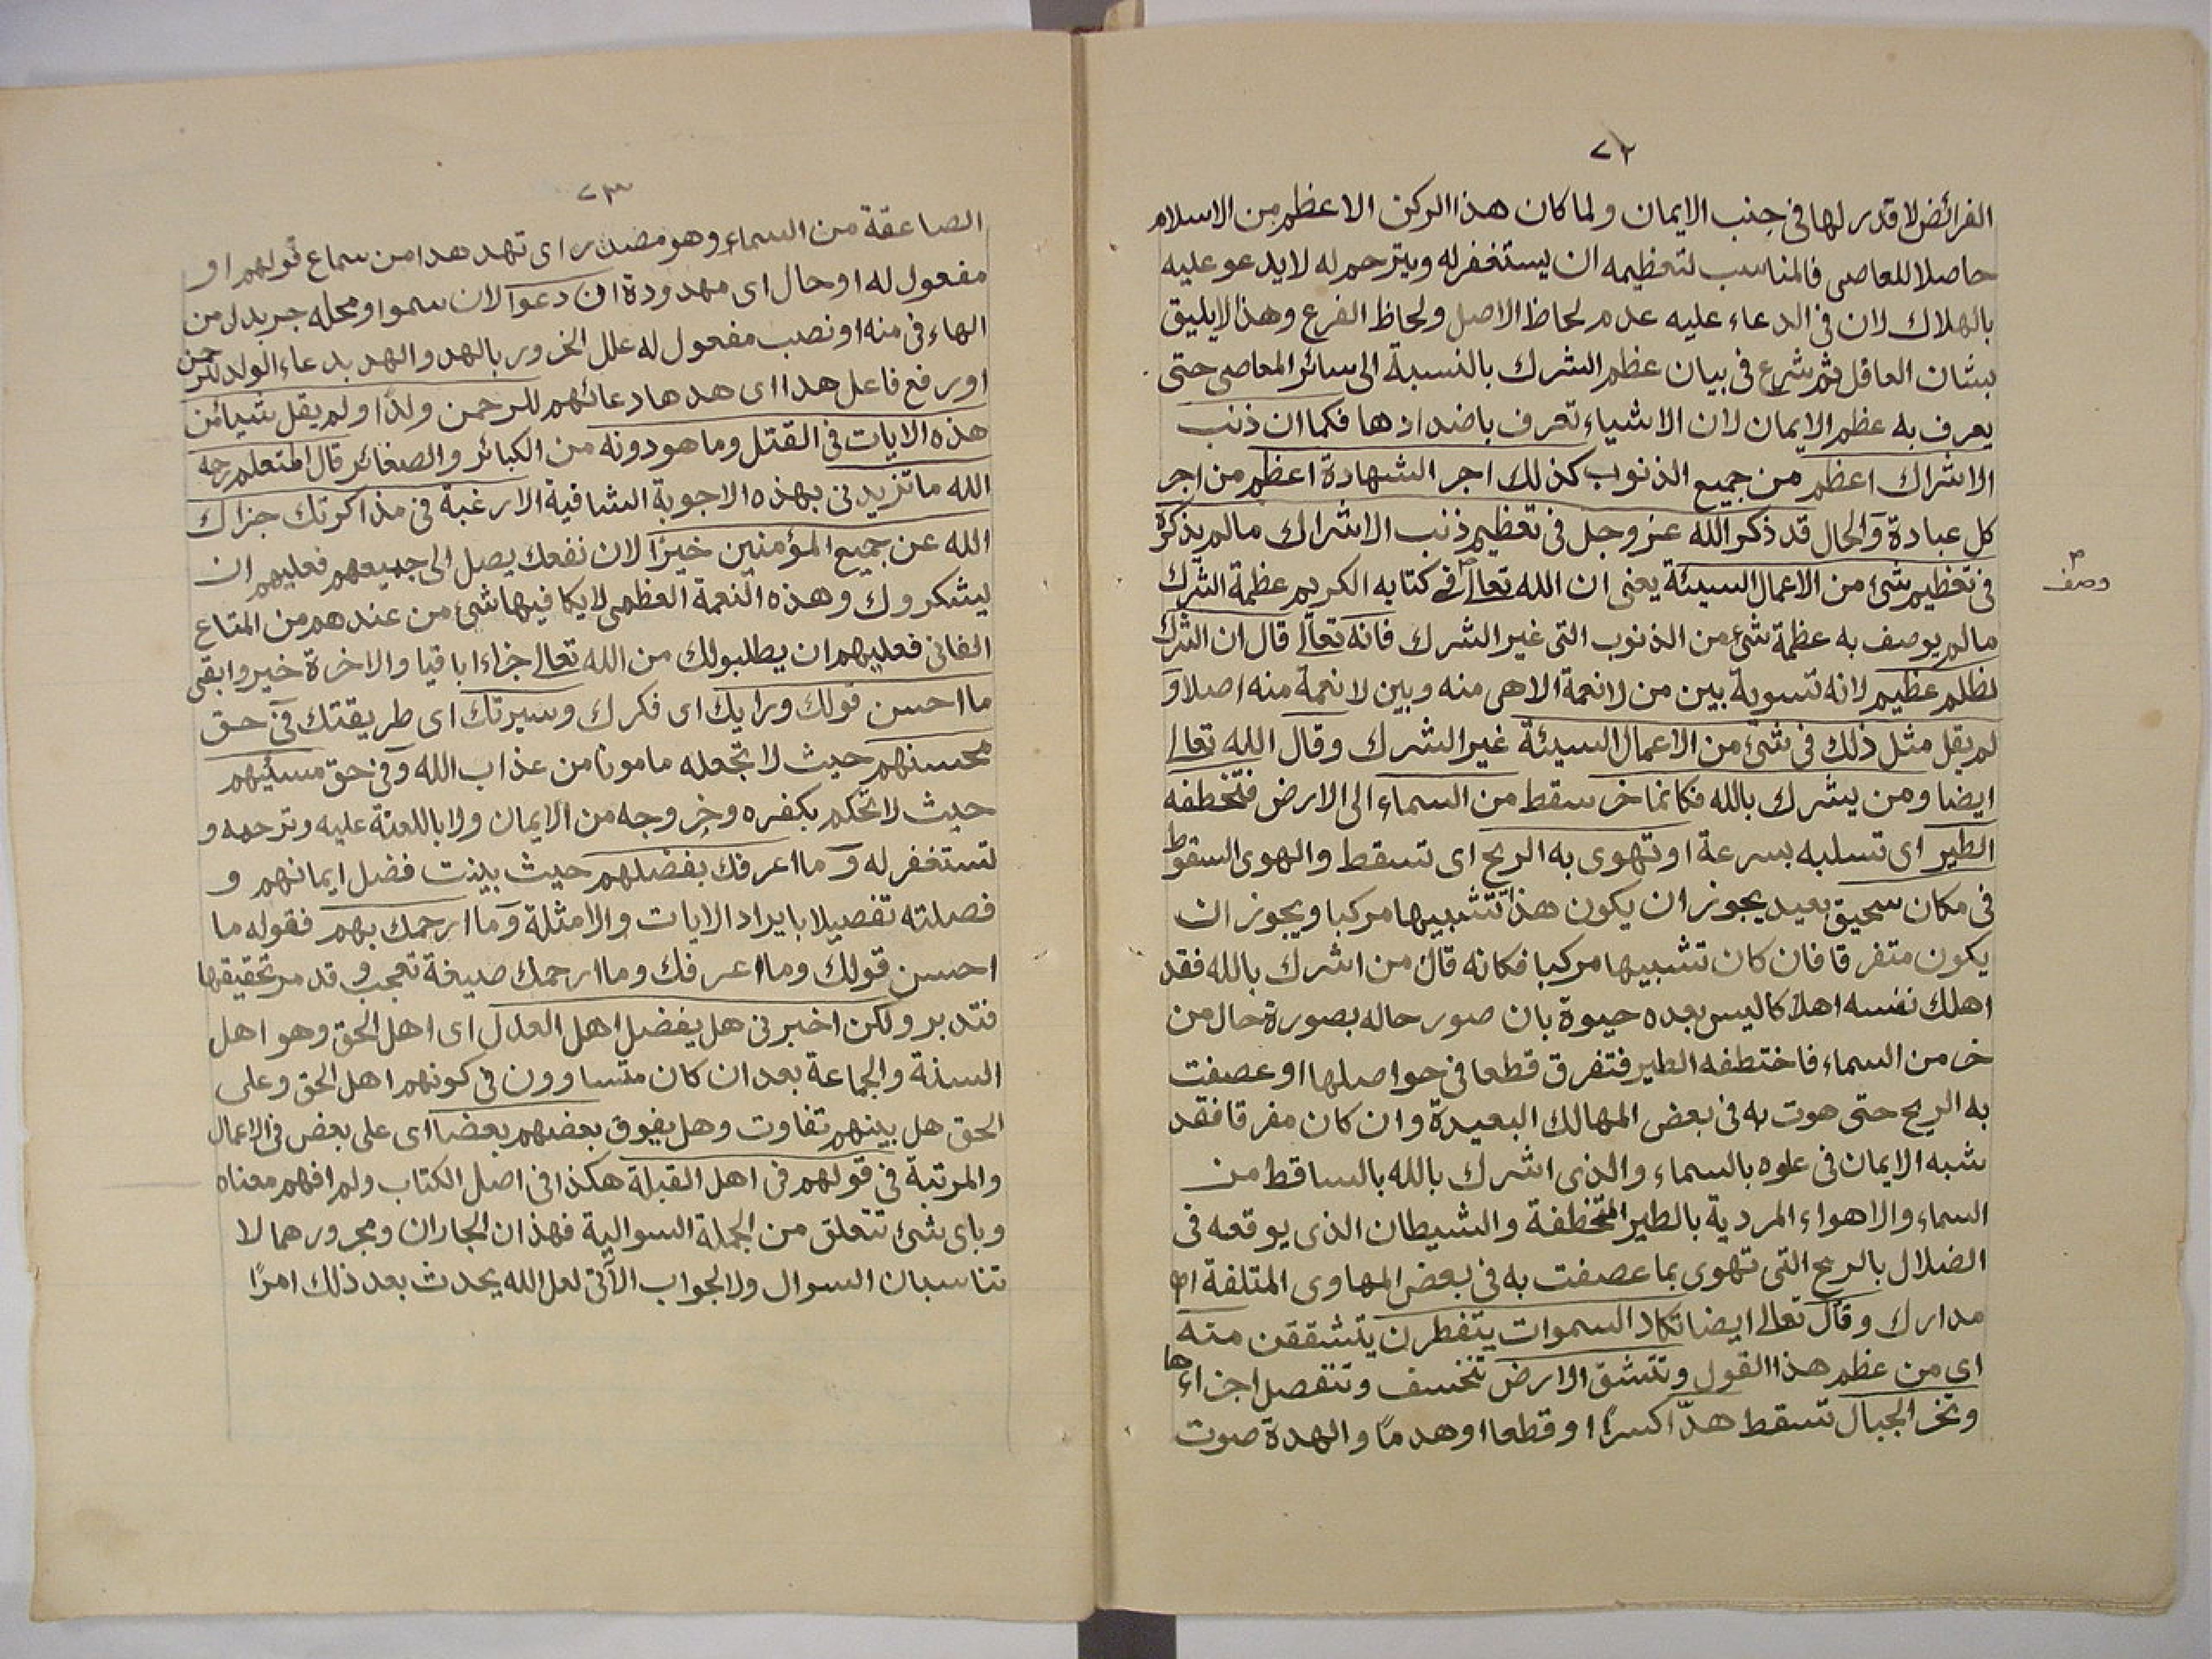 ٧٢
الفرائض لا قدر لها في جنب الايمان ولما كان هذا الركن الاعظم من الاسلام
حاصلا للعاصى فالمناسب لتعظيمه ان يستغفر له ويترحم له لا يدعو عليه
بالهلاك لان في الدعاء عليه عدم لحاظ الاصل ولحاظ الفرع وهذا لا يليق
بشان العاقل ثم شرع في بيان عظم الشرك بالنسبة الى سائر المعاصى حتى
يعرف به عظم الايمان لان الاشياء تعرف باضدادها فكما ان ذنب
الاشراك اعظم من جميع الذنوب كذلك اجر الشهادة اعظم من اجر
كل عبادة والحال قد ذكر الله عز وجل في تعظيم ذنب الاشراك ما لم يذكره
في تعظيم شئ من الاعمال السيئة يعنى ان الله تعالى في كتابه الكريم عظمة الشرك
وصف
ما لم يوصف به عظمة شئ من الذنوب التى غير الشرك فانه تعالى قال ان الشرك
لظلم عظيم لانه تسوية بين من لا نعمة الا هى منه وبين لا نعمة منه اصلا و
لم يقل مثل ذلك في شئ من الاعمال السيئة غير الشرك وقال الله تعالى
ايضا ومن يشرك بالله فكانما خر سقط من السماء الى الارض فتخطفه
الطير اى تسلبه بسرعة او تهوى به الريح اى تسقط والهوى السقوط
في مكان سحيق بعيد يجوز ان يكون هذا تشبيها مركبا ويجوز ان
يكون متفرقا فان كان تشبيها مركبا فكانه قال من اشرك بالله فقد
اهلك نفسه اهلاكا ليس بعده حيوة بان صور حاله بصورة حال من
خر من السماء فاختطفه الطير فتفرق قطعا في حواصلها او عصفت
به الريح حتى هوت به في بعض المهالك البعيدة وان كان مفرقا فقد
شبه الايمان في علوه بالسماء والذى اشرك بالله بالساقط من
السماء والاهواء المردية بالطير المتخطفة والشيطان الذى يوقعه في
الضلال بالريح التى تهوى بما عصفت به في بعض المهاوى المتلفة اه
مدارك وقال تعالى ايضا تكاد السموات يتفطرن يتشققن منه
اى من عظم هذا القول وتنشق الارض تنخسف وتنفصل اجزاءها
وتخر الجبال تسقط هدّا كسرًا او قطعا او هدمًا والهدة صوت
٧٣
الصاعقة من السماء وهو مصدر اى تهد هدا من سماع قولهم او
مفعول له او حال اى مهدودة ان دعوا لان سموا ومحله جر بدل من
الهاء في منه او نصب مفعول له علل الخرور بالهد والهد بدعاء الولد للرحمن
او رفع فاعل هدا اى هدها دعائهم للرحمن ولدًا ولم يقل شيئا من
هذه الايات في القتل وما هو دونه من الكبائر والصغائر قال المتعلم رحمه
الله ما تزيدنى بهذه الاجوبة الشافية الا رغبة في مذاكرتك جزاك
الله عن جميع المؤمنين خيرًا لان نفعك يصل الى جميعهم فعليهم ان
يشكروك وهذه النعمة العظمى لا يكافيها شئ من عندهم من المتاع
الفانى فعليهم ان يطلبوا لك من الله تعالى جزاءا باقيا والاخرة خير وابقى
ما احسن قولك ورايك اى فكرك وسيرتك اى طريقتك في حق
محسنهم حيث لا تجعله مامونا من عذاب الله وفي حق مسئيهم
حيث لا تحكم بكفره وخروجه من الايمان ولا باللعنة عليه وترحمه و
تستغفر له وما اعرفك بفضلهم حيث بينت فضل ايمانهم و
فصلته تفصيلا بايراد الايات والامثلة وما ارحمك بهم فقوله ما
احسن قولك وما اعرفك وما ارحمك صيغة تعجب وقد مر تحقيقها
فتدبر ولكن اخبرنى هل يفضل اهل العدل اى اهل الحق وهو اهل
السنة والجماعة بعد ان كان متساوون في كونهم اهل الحق وعلى
الحق هل بينهم تفاوت وهل يفوق بعضهم بعضا اى على بعض في الاعمال
والمرتبة في قولهم في اهل القبلة هكذا في اصل الكتاب ولم افهم معناه
وباى شئ تتعلق من الجملة السوالية فهذان الجاران ومجرورهما لا
تناسبان السوال ولا الجواب الآتى لعل الله يحدث بعد ذلك امرًا